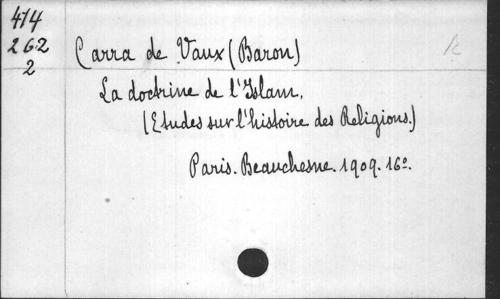 414
262
2
Carra de Vaux (Baron)
La doctrine de l'Islam.
(Etudes sur l'histoire des Religions.)
Paris. Beauchesne. 1909. 16º.